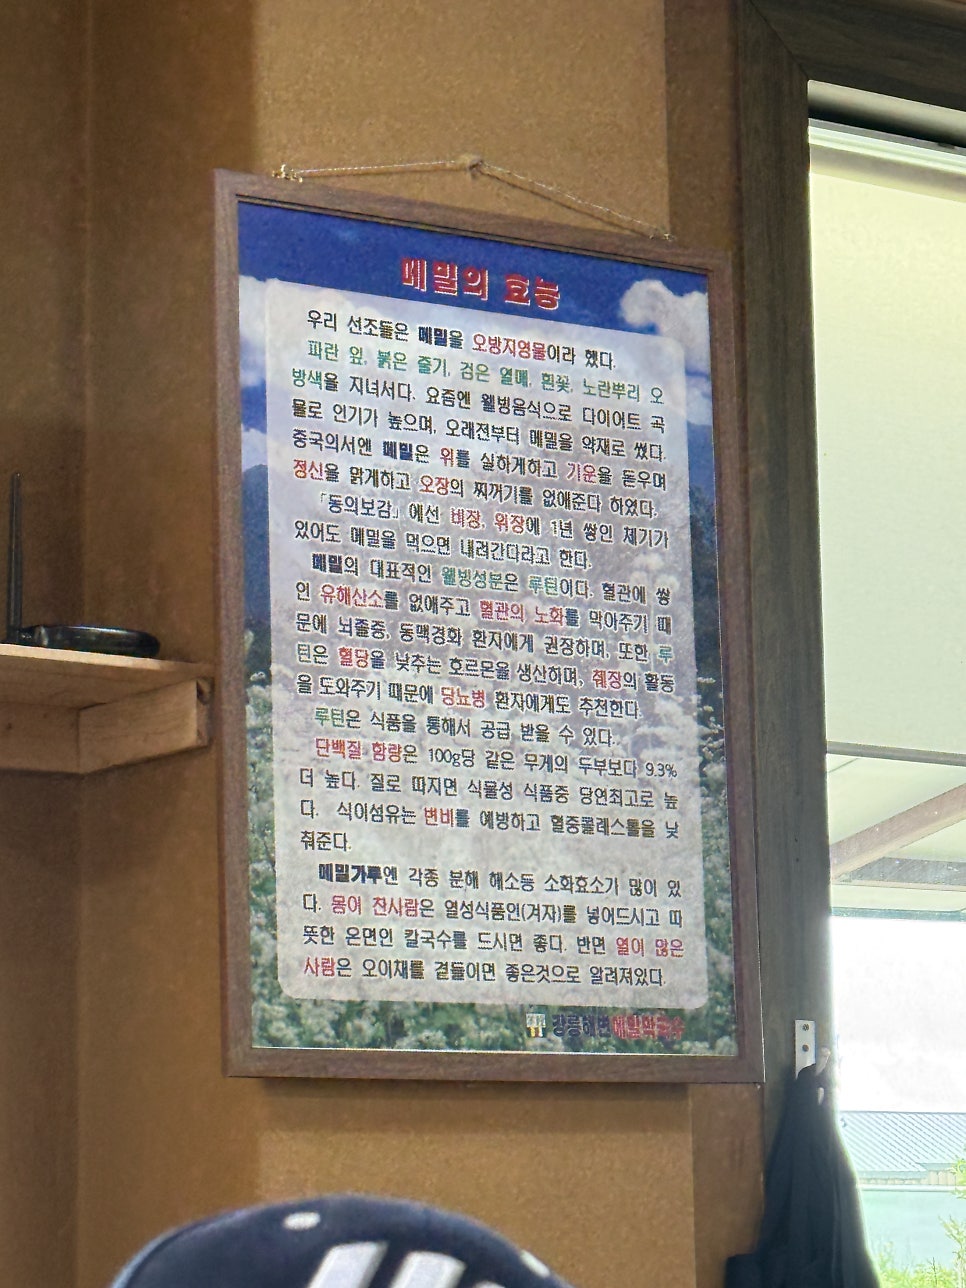 메밀의 효능
우리 선조들은 메밀을 오방지영물이라 했다.
파란 잎, 붉은 줄기, 검은 열매, 흰꽃, 노란뿌리 오
방색을 지녀서다. 요즘엔 웰빙음식으로 다이어트 곡
물로 인기가 높으며, 오래전부터 메밀을 약재로 썼다.
중국의서엔 메밀은 위를 실하게하고 기운을 돋우며
정신을 맑게하고 오장의 찌꺼기를 없애준다 하였다.
「동의보감」에선 비장, 위장에 1년 쌓인 체기가
있어도 메밀을 먹으면 내려간다라고 한다.
메밀의 대표적인 웰빙성분은 루틴이다. 혈관에 쌓
인 유해산소를 없애주고 혈관의 노화를 막아주기 때
문에 뇌졸중, 동맥경화 환자에게 권장하며, 또한 루
틴은 혈당을 낮추는 호르몬을 생산하며, 췌장의 활동
을 도와주기 때문에 당뇨병 환자에게도 추천한다.
루틴은 식품을 통해서 공급 받을 수 있다..
단백질 함량은 100g당 같은 무게의 두부보다 9.3%
더 높다. 질로 따지면 식물성 식품중 당연최고로 높
다. 식이섬유는 변비를 예방하고 혈중콜레스톨을 낮
춰준다.
메밀가루엔 각종 분해 해소등 소화효소가 많이 있
다. 몸이 찬사람은 열성식품인(겨자)를 넣어드시고 따
뜻한 온면인 칼국수를 드시면 좋다. 반면 열이 많은
사람은 오이채를 곁들이면 좋은것으로 알려져있다.
강릉해변메밀막국수